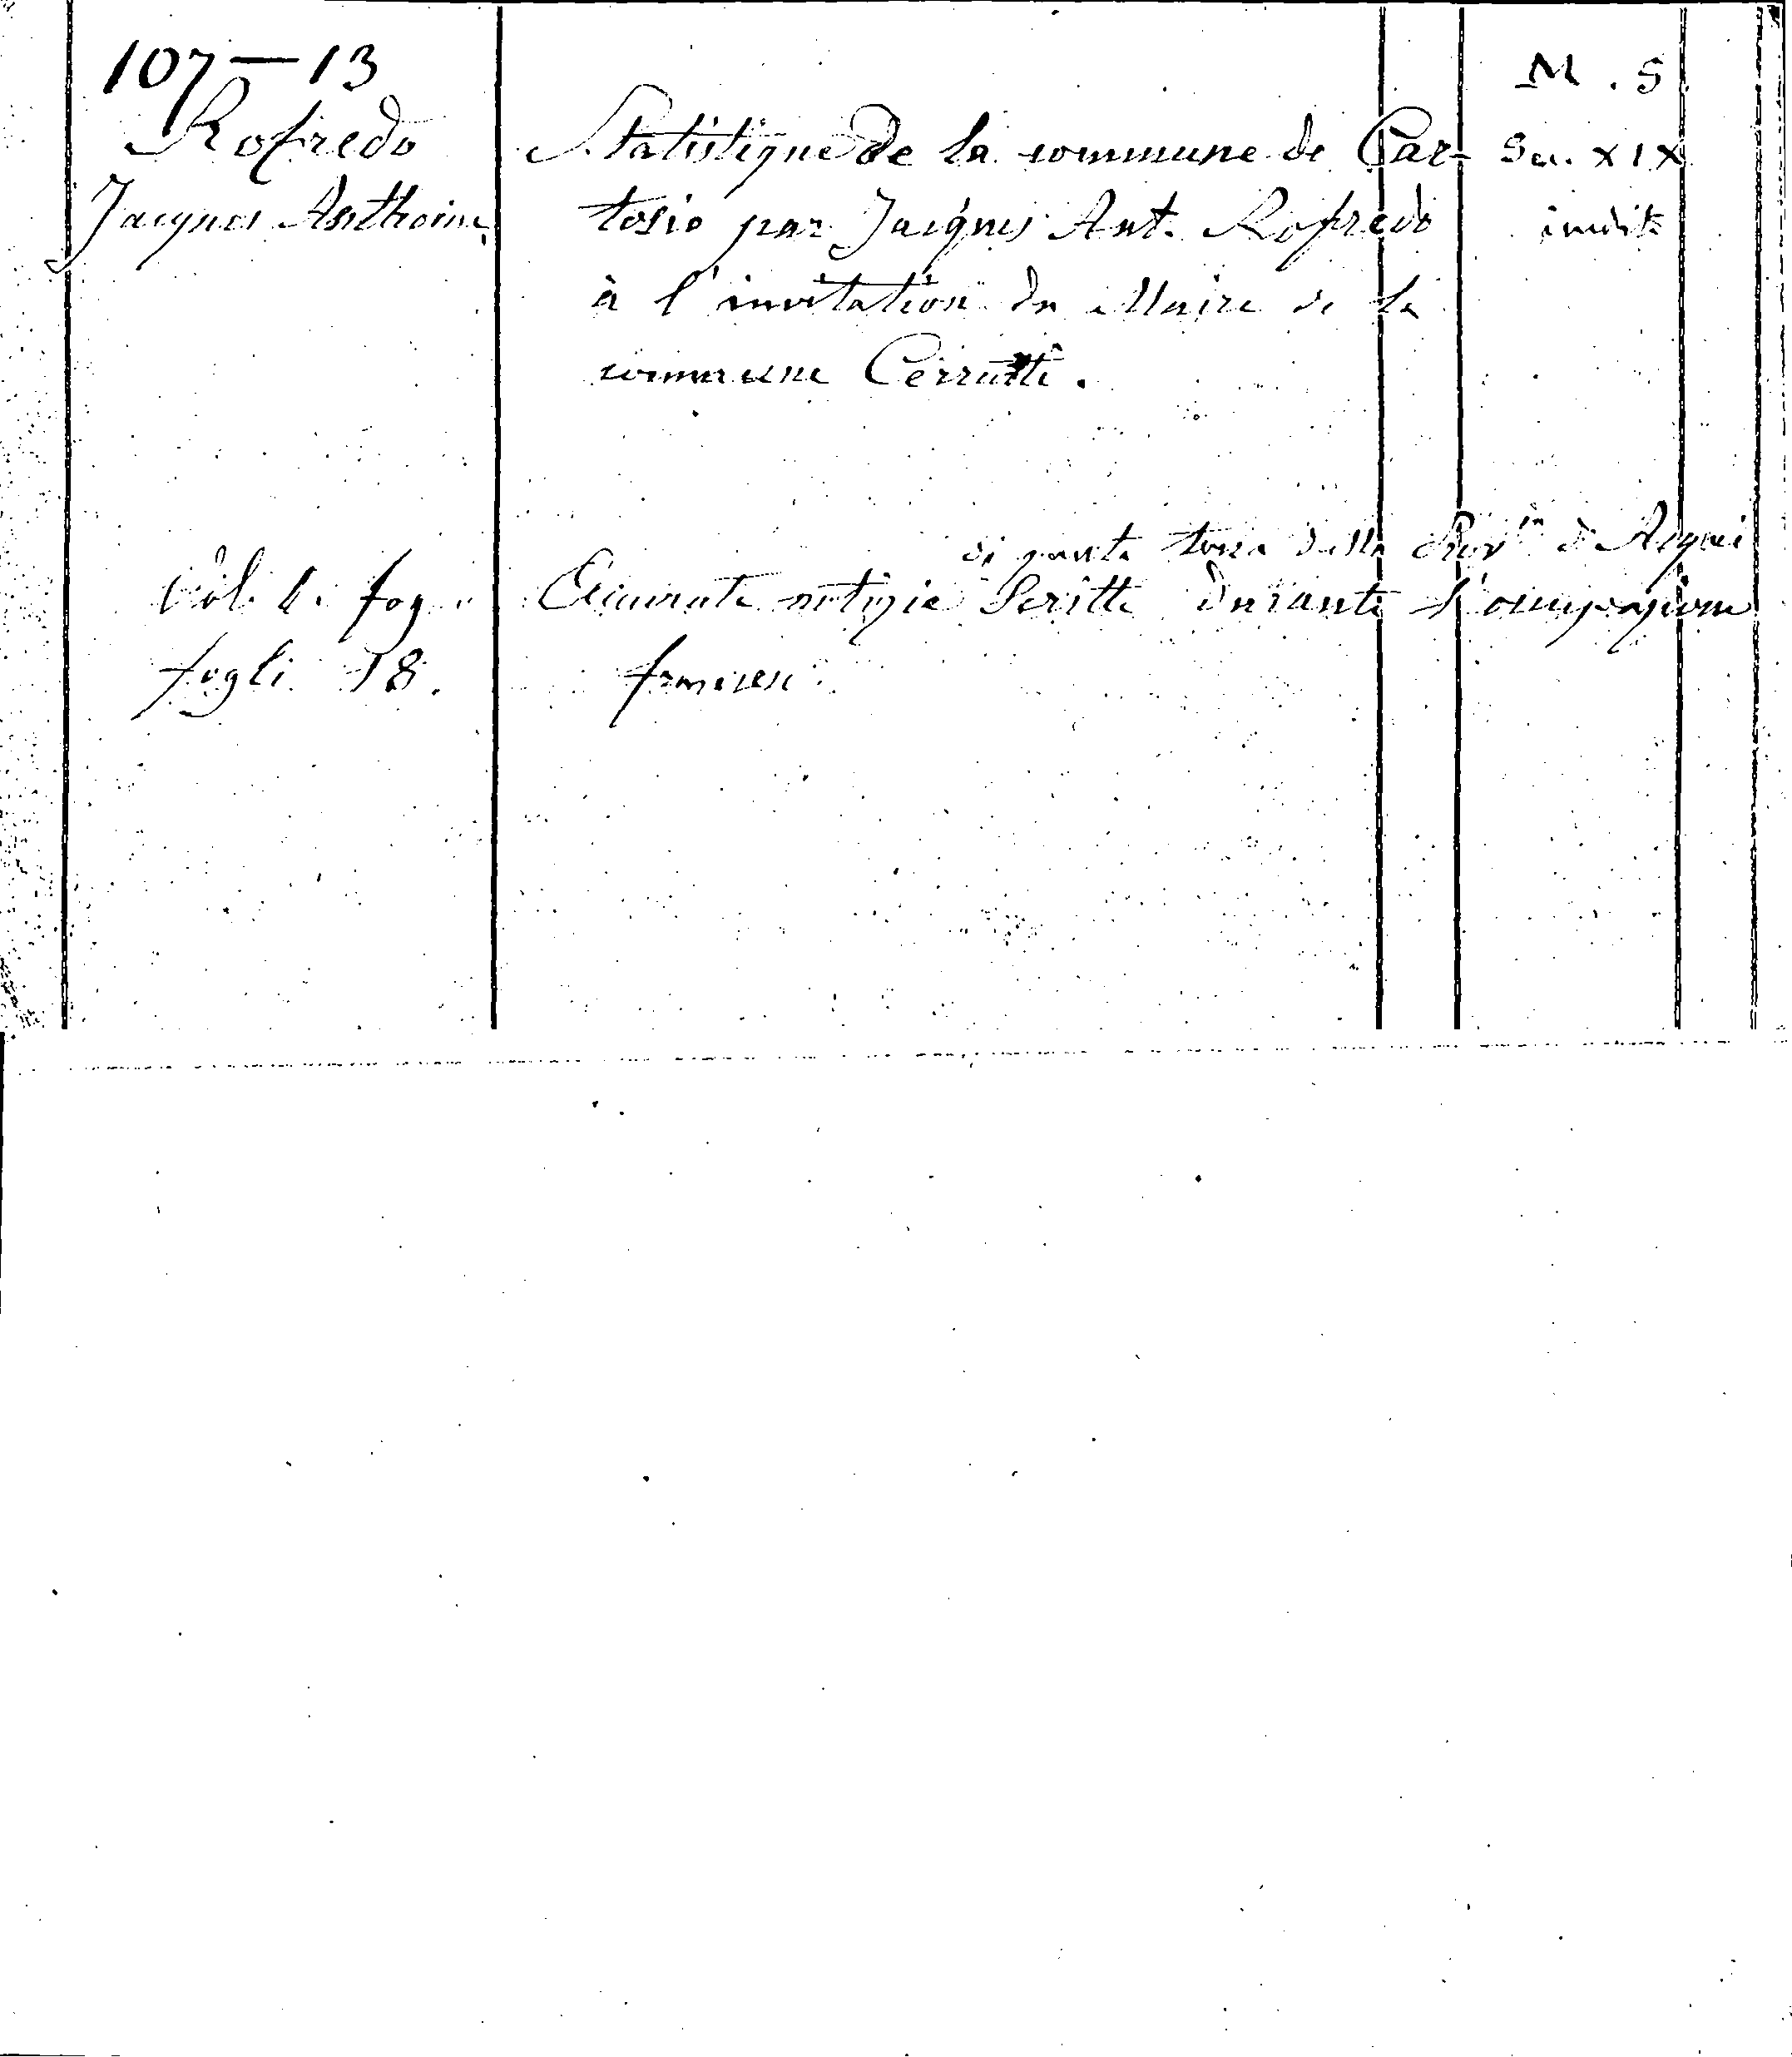 107 — 13
Rofredo
Jacques Anthoine
Statistique de la commune de Car-
tosio par Jacques Ant. Rofredo
à l'invitation du Maire de la
commune Cerruti.
M. S
Sec. XIX
inedito
Vol. fog.
fogli 18.
di questa terra della Prov.ia d'Acqui
Accurate notizie Scritte durante l'occupazione
francese